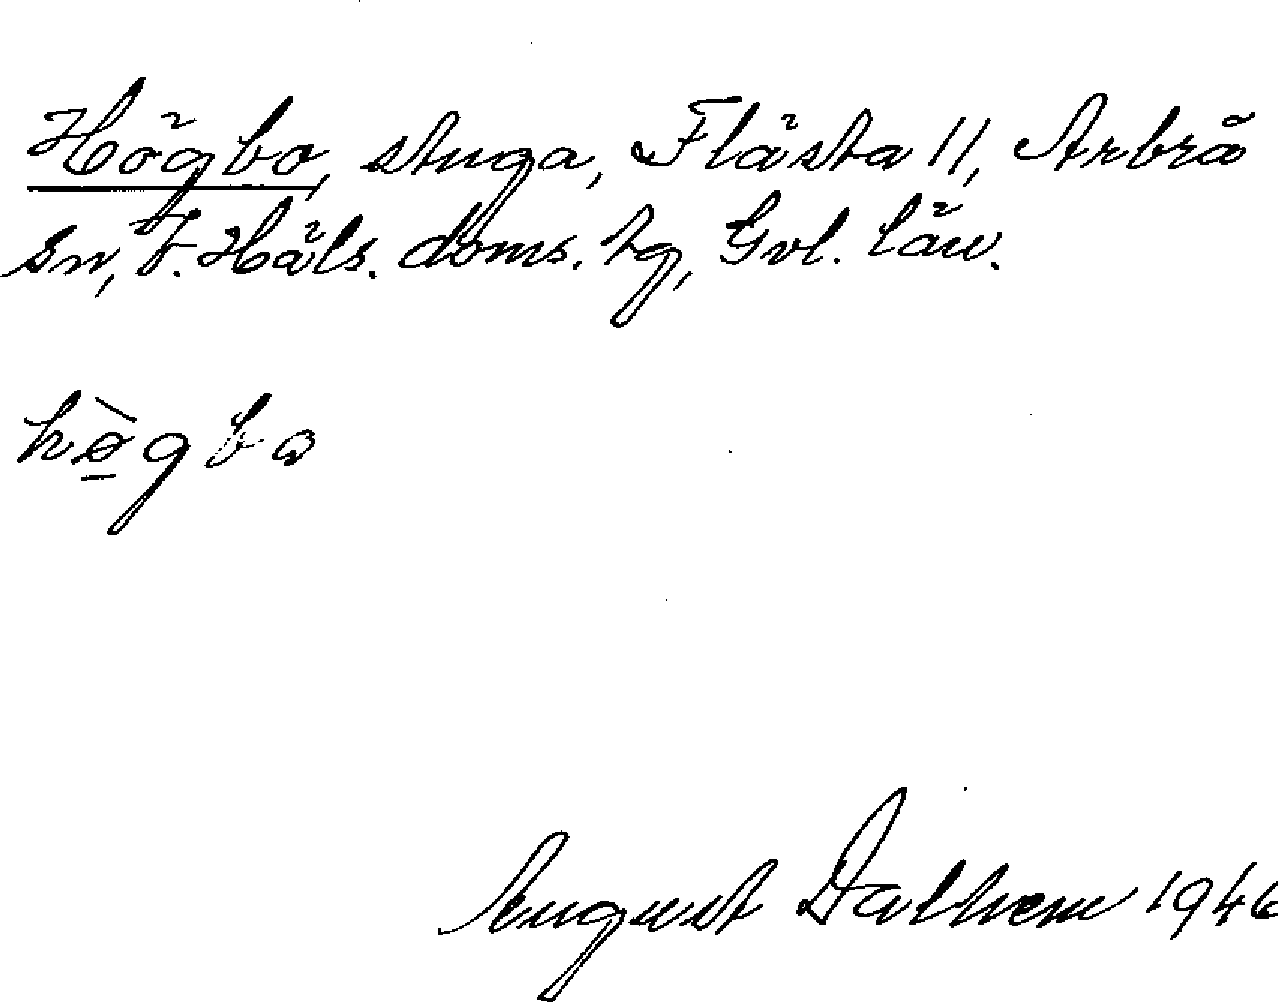 Högbo, stuga, Flästa 11, Arbrå
sn, V. Häls. doms. tg, Gvl. län.
hø̲̀gbo
August Dalhem 1946